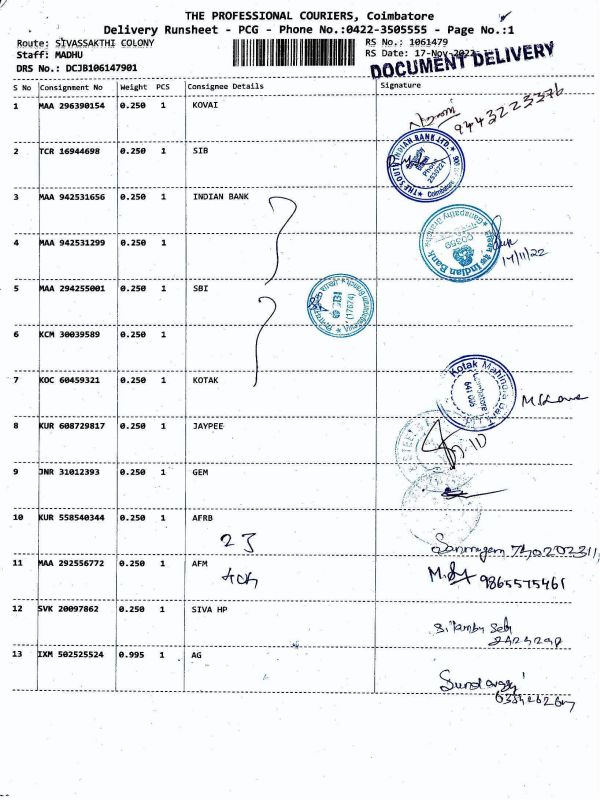 THE PROFESSIONAL COURIERS, Coimbatore
Delivery Runsheet - PCG - Phone No.:0422-3505555 - Page No.:1
Route: SIVASSAKTHI COLONY RS No.: 1061479
Staff: MADHU RS Date: 17-Nov-2022
DRS No.: DCJB106147901 DOCUMENT DELIVERY
S No Consignment No Weight PCS Consignee Details Signature
1 MAA 296390154 0.250 1 KOVAI
9443223376
2 TCR 16944698 0.250 1 SIB
THE SOUTH INDIAN BANK LTD. Coimbatore Phone 2530221
3 MAA 942531656 0.250 1 INDIAN BANK
Indian Bank Ganapathy Branch
4 MAA 942531299 0.250 1
17/11/22
5 MAA 294255001 0.250 1 SBI
SBI (17674)
6 KCM 30039589 0.250 1
7 KOC 60459321 0.250 1 KOTAK
Kotak Mahindra Bank Coimbatore 641 006
8 KUR 608729817 0.250 1 JAYPEE
9 JNR 31012393 0.250 1 GEM
10 KUR 558540344 0.250 1 AFRB
23
11 MAA 292556772 0.250 1 AFM
9865575461
12 SVK 20097862 0.250 1 SIVA HP
13 IXM 502525524 0.995 1 AG